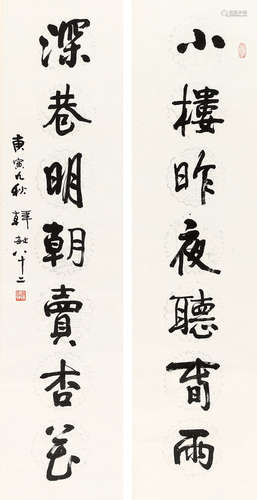 小樓昨夜聽春雨
深巷明朝賣杏花
庚寅九秋 韓敏八十二